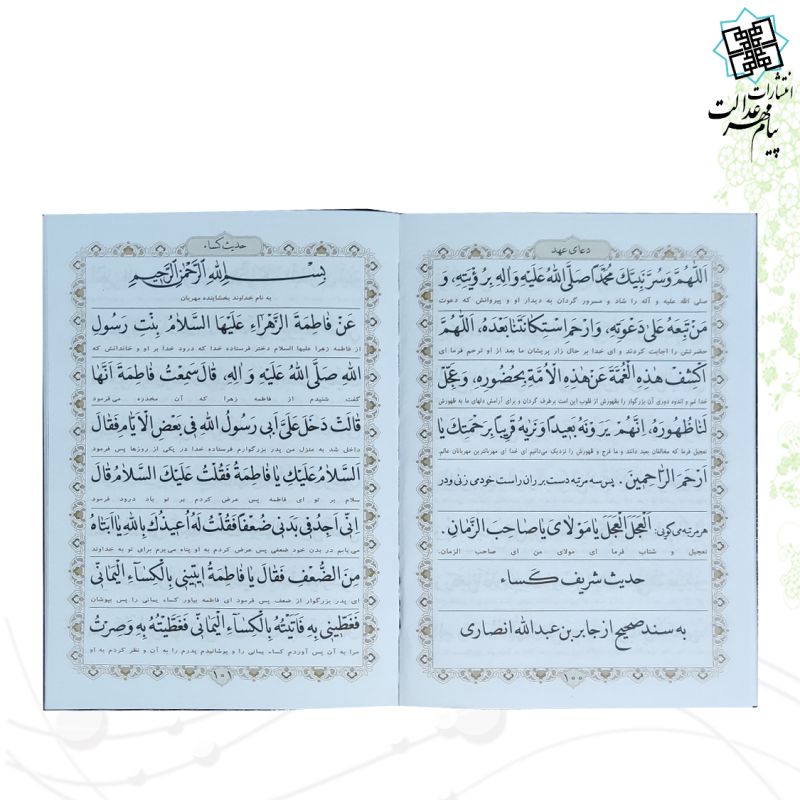 انتشارات
پیام مهر عدالت
دعای عهد
اَللّهُمَّ وَسُرَّ نَبِیَّكَ مُحَمَّداً صَلَّی اللهُ عَلَیْهِ وَالِهِ بِرُؤْیَتِهِ، وَ
صلی الله علیه و آله را شاد و مسرور گردان به دیدار او و پیروانش که دعوت
مَنْ تَبِعَهُ عَلی دَعْوَتِهِ، وَارْحَمِ اسْتِکانَتَنا بَعْدَهُ، اَللّهُمَّ
حضرتش را اجابت کردند و ای خدا بر حال زار پریشان ما بعد از او ترحم فرما ای
اکْشِفْ هذِهِ الْغُمَّةَ عَنْ هذِهِ الْاُمَّةِ بِحُضُورِهِ، وَعَجِّلْ
خدا غم و اندوه دوری آن بزرگوار را بظهورش از قلوب این امت برطرف گردان و برای آرامش دلهای ما به ظهورش
لَنا ظُهُورَهُ، اِنَّهُمْ یَرَوْنَهُ بَعیداً وَنَریهُ قَریباً بِرَحْمَتِكَ یا
تعجیل فرما که مخالفان بعید دانند و ما فرج و ظهورش را نزدیک می‌دانیم ای خدا ای مهربانترین مهربانان عالم.
اَرْحَمَ الرّاحِمینَ. پس سه مرتبه دست بر ران راست خود می زنی و در
هر مرتبه می گویی: اَلْعَجَلَ الْعَجَلَ یا مَوْلایَ یا صاحِبَ الزَّمانِ.
تعجیل و شتاب فرما ای مولای من ای صاحب الزمان.
حدیث شریف کساء
به سند صحیح از جابر بن عبدالله انصاری
۱۰۰
حدیث کساء
بِسْمِ اللهِ الرَّحْمٰنِ الرَّحیمِ
به نام خداوند بخشاینده مهربان
عَنْ فاطِمَةَ الزَّهْراءِ عَلَیْهَا السَّلامُ بِنْتِ رَسُولِ
از فاطمه زهرا علیها السلام دختر فرستاده خدا که درود خدا بر او و خاندانش که
اللهِ صَلَّی اللهُ عَلَیْهِ وَ الِهِ، قالَ سَمِعْتُ فاطِمَةَ اَنَّها
گفت شنیدم از فاطمه زهرا که آن مخدره می‌فرمود
قالَتْ دَخَلَ عَلَیَّ اَبی رَسُولُ اللهِ فی بَعْضِ الْاَیّامِ فَقالَ
داخل شد به منزل من پدر بزرگوارم فرستاده خدا در یکی از روزها پس فرمود
اَلسَّلامُ عَلَیْكِ یا فاطِمَةُ فَقُلْتُ عَلَیْكَ السَّلامُ قالَ
سلام بر تو ای فاطمه پس عرض کردم بر تو باد درود فرمود
اِنّی اَجِدُ فی بَدَنی ضُعْفاً فَقُلْتُ لَهُ اُعیذُكَ بِاللهِ یا اَبَتاهُ
می‌یابم در بدن خود ضعفی پس عرض کردم به او پناه می‌برم برای تو به خداوند
مِنَ الضُّعْفِ فَقالَ یا فاطِمَةُ ایتینی بِالْکِساءِ الْیَمانی
ای پدر بزرگوار از ضعف پس فرمود ای فاطمه بیاور کساء یمانی را پس بپوشان
فَغَطّینی بِهِ فَاَتَیْتُهُ بِالْکِساءِ الْیَمانی فَغَطَّیْتُهُ بِهِ وَ صِرْتُ
مرا به آن پس آوردم کساء یمانی را و پوشانیدم پدرم را به آن و نظر کردم به او
۱۰۱